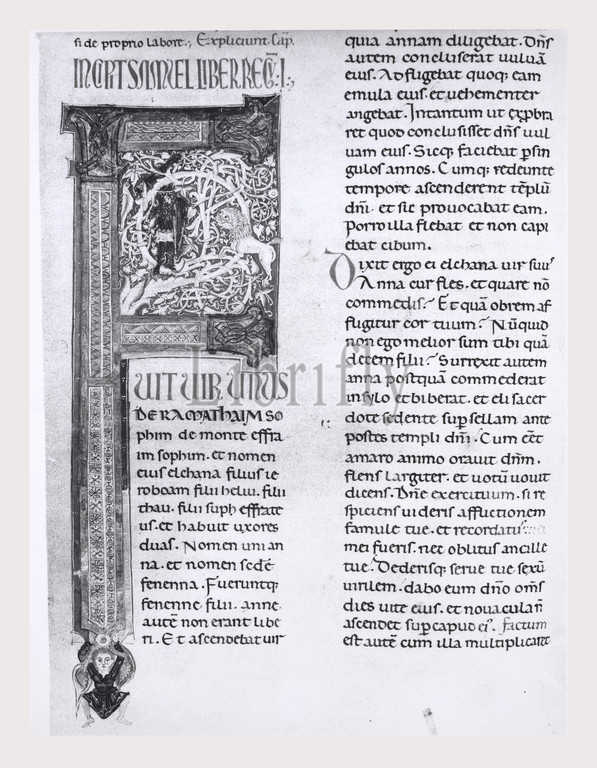 si de proprio labore., Expliciunt. Cap.
INCIPIT SAMUEL LIBER REGŪ: I:,
UIT UIR UNUS
DE RAMATHAIM SO
phim de monte effra
im sophim. et nomen
eius elchana filius ie
roboam filii heliu. filii
thau. filii suph effrate
us. et habuit uxores
duas. Nomen uni an
na. et nomen sedē
fenenna. Fueruntq;
fenenne filii. anne.
autē non erant libe
ri. Et ascendebat uir
quia annam diligebat. Dn̄s
autem concluserat uuluā
eius. Adfligebat quoq; eam
emula eius. et uehementer
angebat. Intantum ut exp̄bra
ret quod conclusisset dn̄s uul
uam eius. Sicq; faciebat p̄ sin
gulos annos. Cumq; redeunte
tempore ascenderent tēplū
dn̄i. et sic prouocabat eam.
Porro illa flebat et non capi
ebat cibum.
Dixit ergo ei elchana uir suus
Anna cur fles. et quare nō
commedis? Et quā obrem af
fligitur cor tuum? Nūquid
non ego melior sum tibi quā
decem filii? Surrexit autem
anna postquā commederat
in sylo et biberat. et eli sacer
dote sedente sup̄ sellam ante
postes templi dn̄i. Cum eēt
amaro animo orauit dn̄m.
flens largiter. et uotū uouit
dicens. Dn̄e exercituum. si re
spiciens uideris afflictionem
famule tue. et recordatus
mei fueris. nec oblitus ancille
tue. Dederisq; serue tue sexū
uirilem. dabo eum dn̄o om̄s
dies uite eius. et nouacula n̄
ascendet sup̄ capud ei'. Factum
est autē cum illa multiplicaret
Librifly